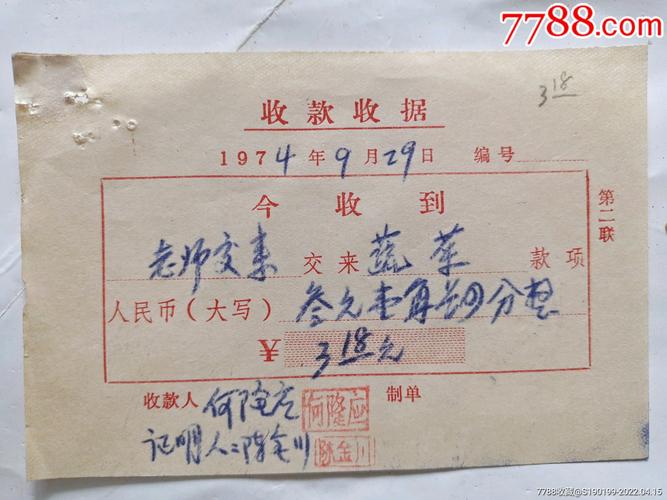 7788.com
3 18
收款收据
1974年9月29日 编号
第二联
今收到
老师交来 交来 蔬菜 款项
人民币（大写） 叁元壹角 分整
¥ 3 18 元
收款人 何隆应 何隆应 制单
证明人：陈金川 陈金川
7788收藏@S190199-2022.04.15